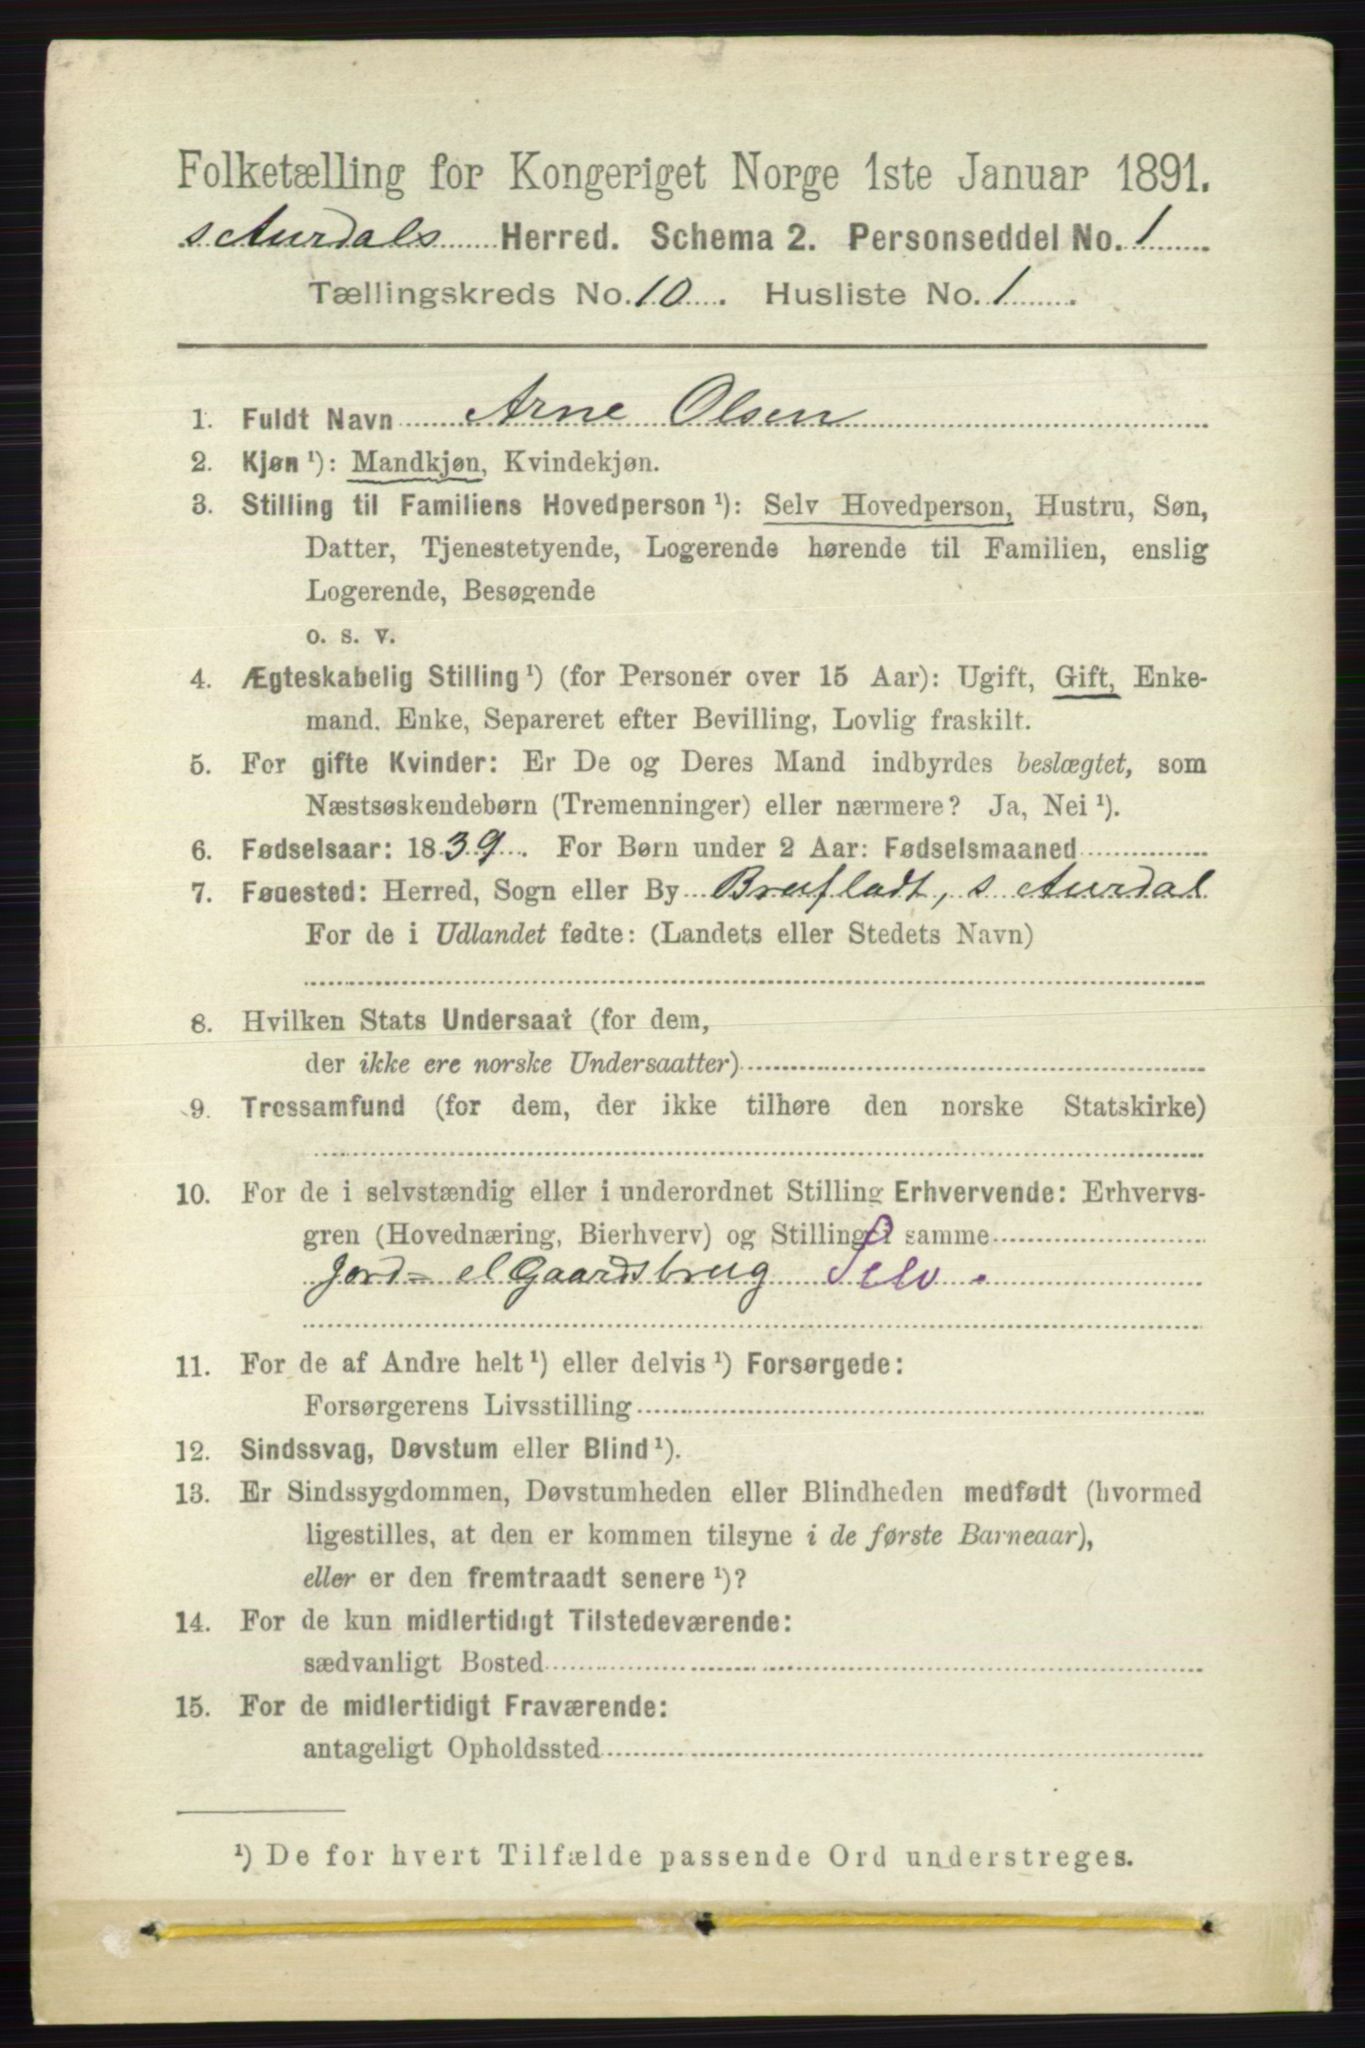 Folketælling for Kongeriget Norge 1ste Januar 1891.
s Aurdals Herred. Schema 2. Personseddel No. 1
Tællingskreds No. 10. Husliste No. 1
1. Fuldt Navn Arne Olsen
2. Kjøn ¹): Mandkjøn, Kvindekjøn.
3. Stilling til Familiens Hovedperson ¹): Selv Hovedperson, Hustru, Søn,
Datter, Tjenestetyende, Logerende hørende til Familien, enslig
Logerende, Besøgende
o. s. v.
4. Ægteskabelig Stilling ¹) (for Personer over 15 Aar): Ugift, Gift, Enke-
mand, Enke, Separeret efter Bevilling, Lovlig fraskilt.
5. For gifte Kvinder: Er De og Deres Mand indbyrdes beslægtet, som
Næstsøskendebørn (Tremenninger) eller nærmere? Ja, Nei ¹).
6. Fødselsaar: 1839. For Børn under 2 Aar: Fødselsmaaned
7. Fødested: Herred, Sogn eller By Brufladt, s Aurdal
For de i Udlandet fødte: (Landets eller Stedets Navn)
8. Hvilken Stats Undersaat (for dem,
der ikke ere norske Undersaatter)
9. Trossamfund (for dem, der ikke tilhøre den norske Statskirke)
10. For de i selvstændig eller i underordnet Stilling Erhvervende: Erhvervs-
gren (Hovednæring, Bierhverv) og Stilling i samme
Jord- el Gaardsbrug Selv.
11. For de af Andre helt ¹) eller delvis ¹) Forsørgede:
Forsørgerens Livsstilling
12. Sindssvag, Døvstum eller Blind ¹).
13. Er Sindssygdommen, Døvstumheden eller Blindheden medfødt (hvormed
ligestilles, at den er kommen tilsyne i de første Barneaar),
eller er den fremtraadt senere ¹)?
14. For de kun midlertidigt Tilstedeværende:
sædvanligt Bosted
15. For de midlertidigt Fraværende:
antageligt Opholdssted
¹) De for hvert Tilfælde passende Ord understreges.